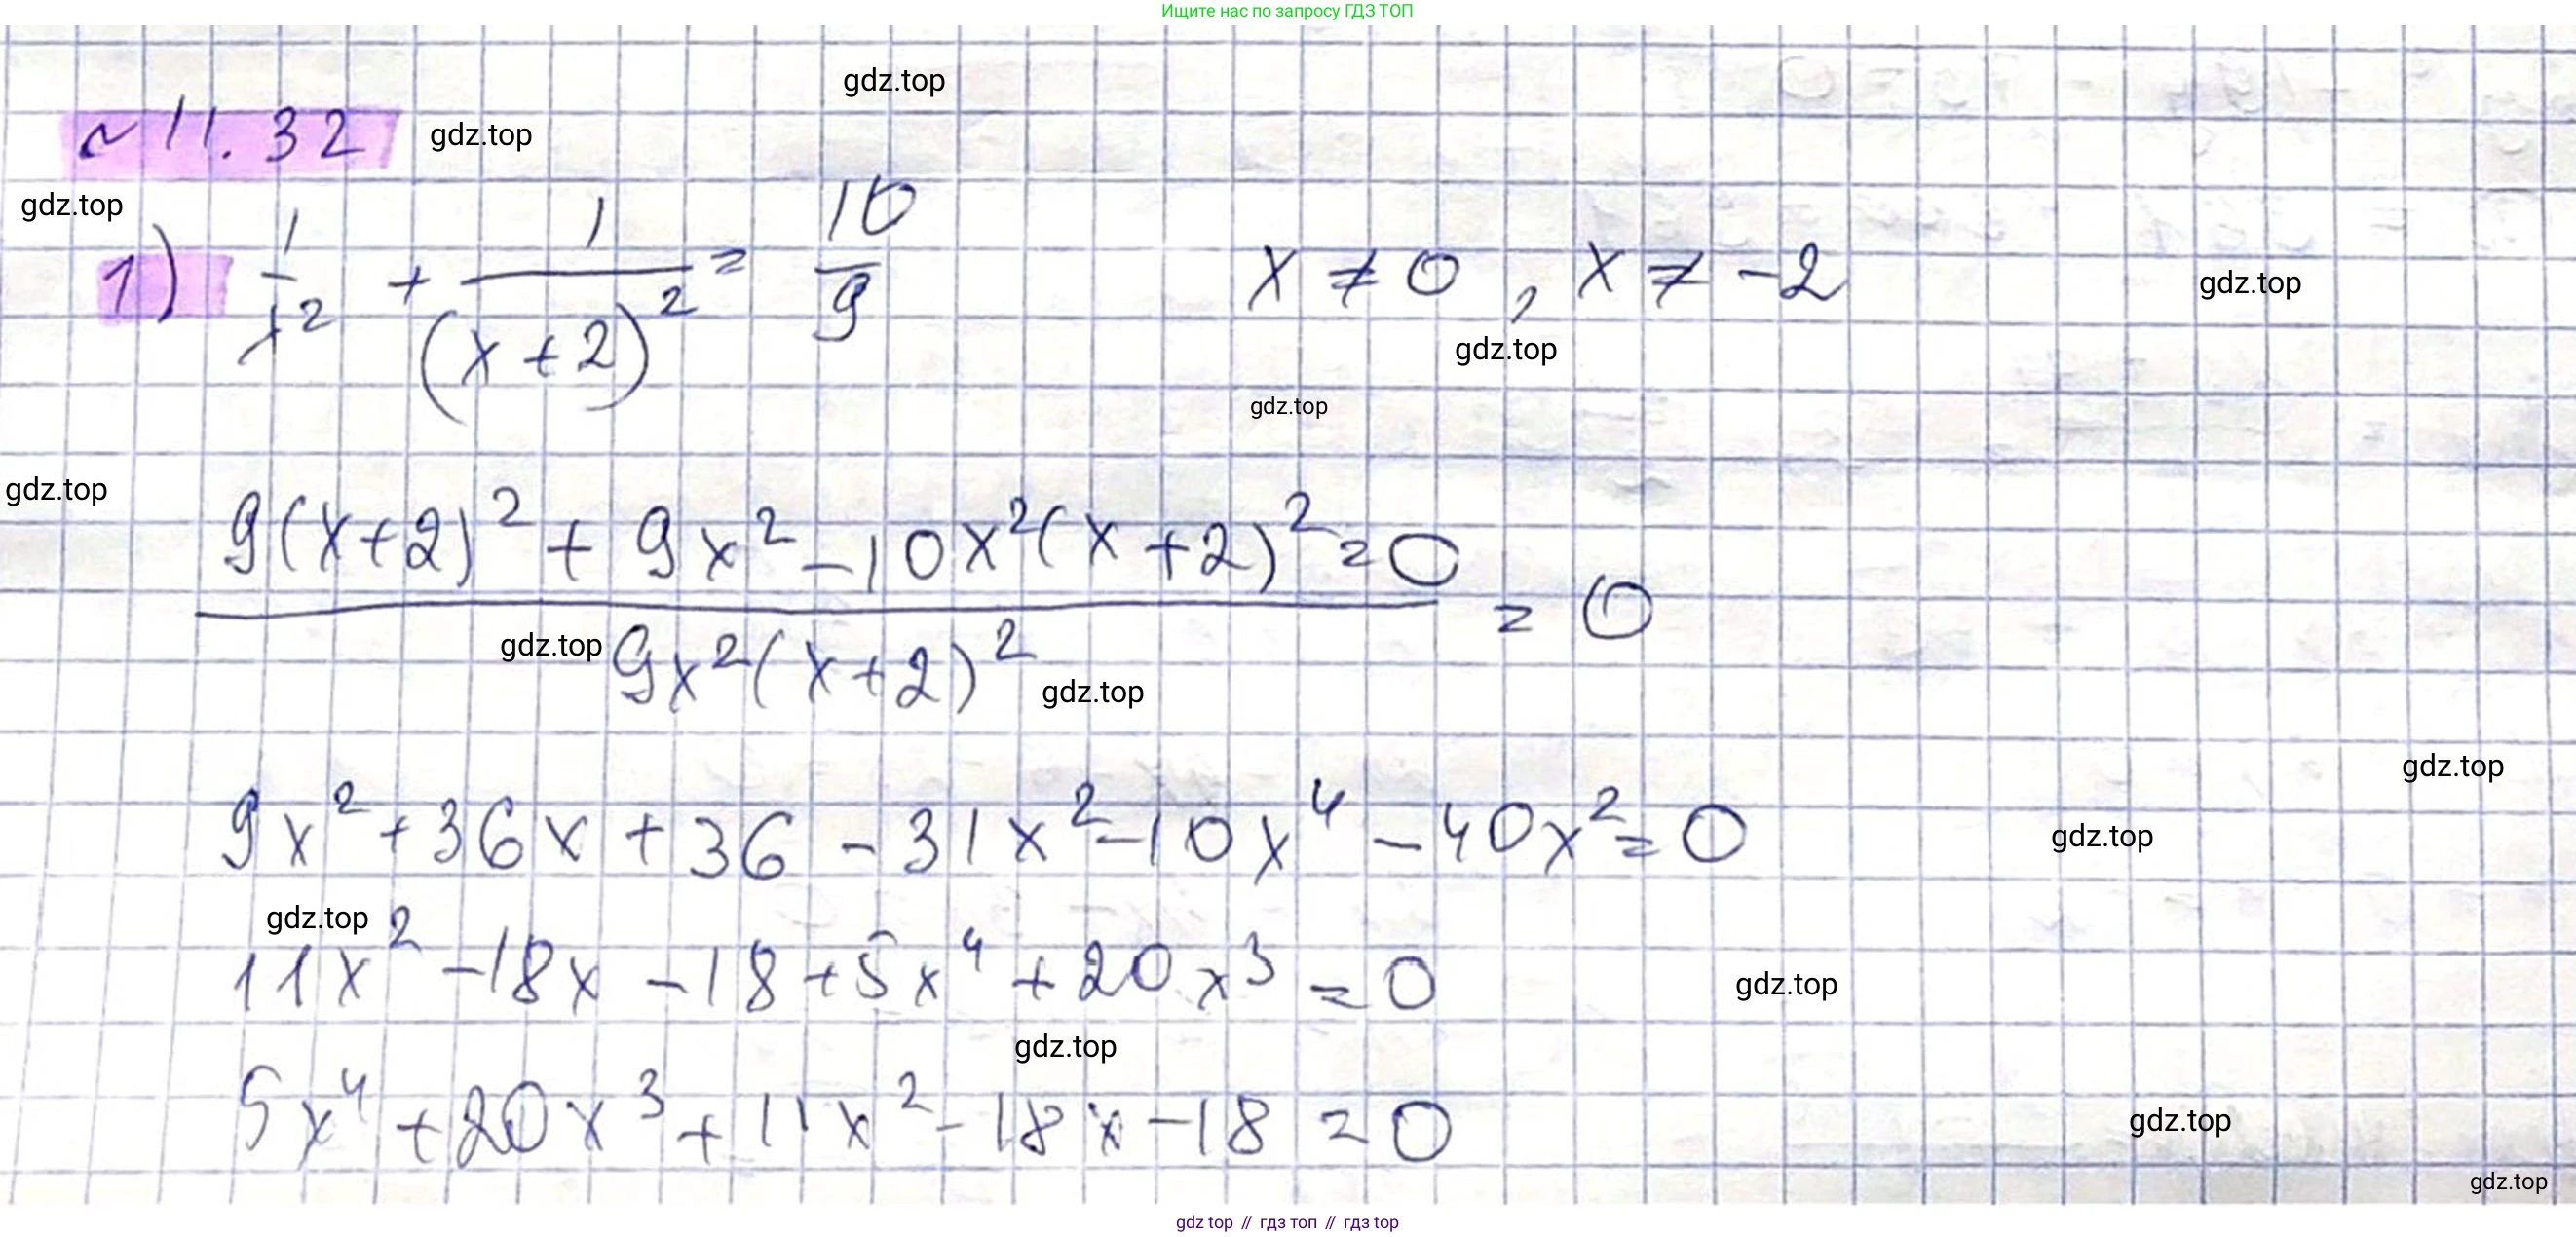 Ищите нас по запросу ГДЗ ТОП
gdz.top
№11.32 gdz.top
gdz.top
1) 1/x² + 1/(x+2)² = 10/9 x ≠ 0, x ≠ -2 gdz.top
gdz.top
gdz.top
gdz.top
9(x+2)² + 9x² - 10x²(x+2)² = 0
/ 9x²(x+2)² = 0
gdz.top
gdz.top
gdz.top
9x² + 36x + 36 - 31x² - 10x⁴ - 40x² = 0 gdz.top
gdz.top
11x² - 18x - 18 + 5x⁴ + 20x³ = 0 gdz.top
gdz.top
5x⁴ + 20x³ + 11x² - 18x - 18 = 0 gdz.top
gdz.top
gdz top // гдз топ // гдз top